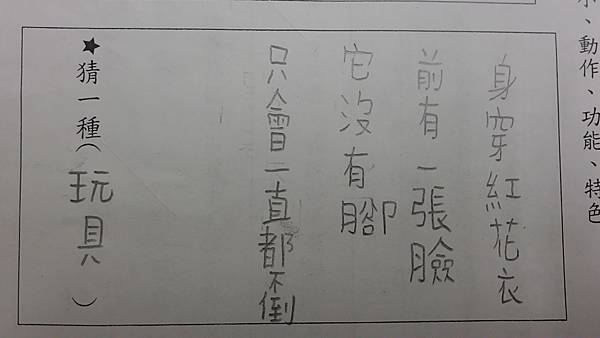 小、動作、功能、特色
身穿紅花衣
前有一張臉
它沒有腳
只會一直都不倒
★猜一種（玩具）